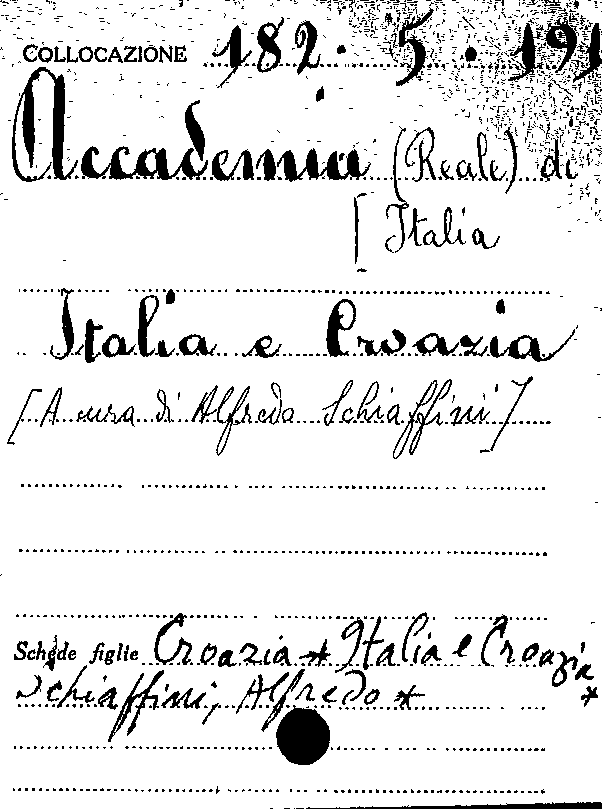 COLLOCAZIONE 182. 5. 191
Accademia (Reale) di
[Italia
Italia e Croazia
[A cura di Alfredo Schiaffini]
Schede figlie Croazia * Italia e Croazia *
Schiaffini, Alfredo *